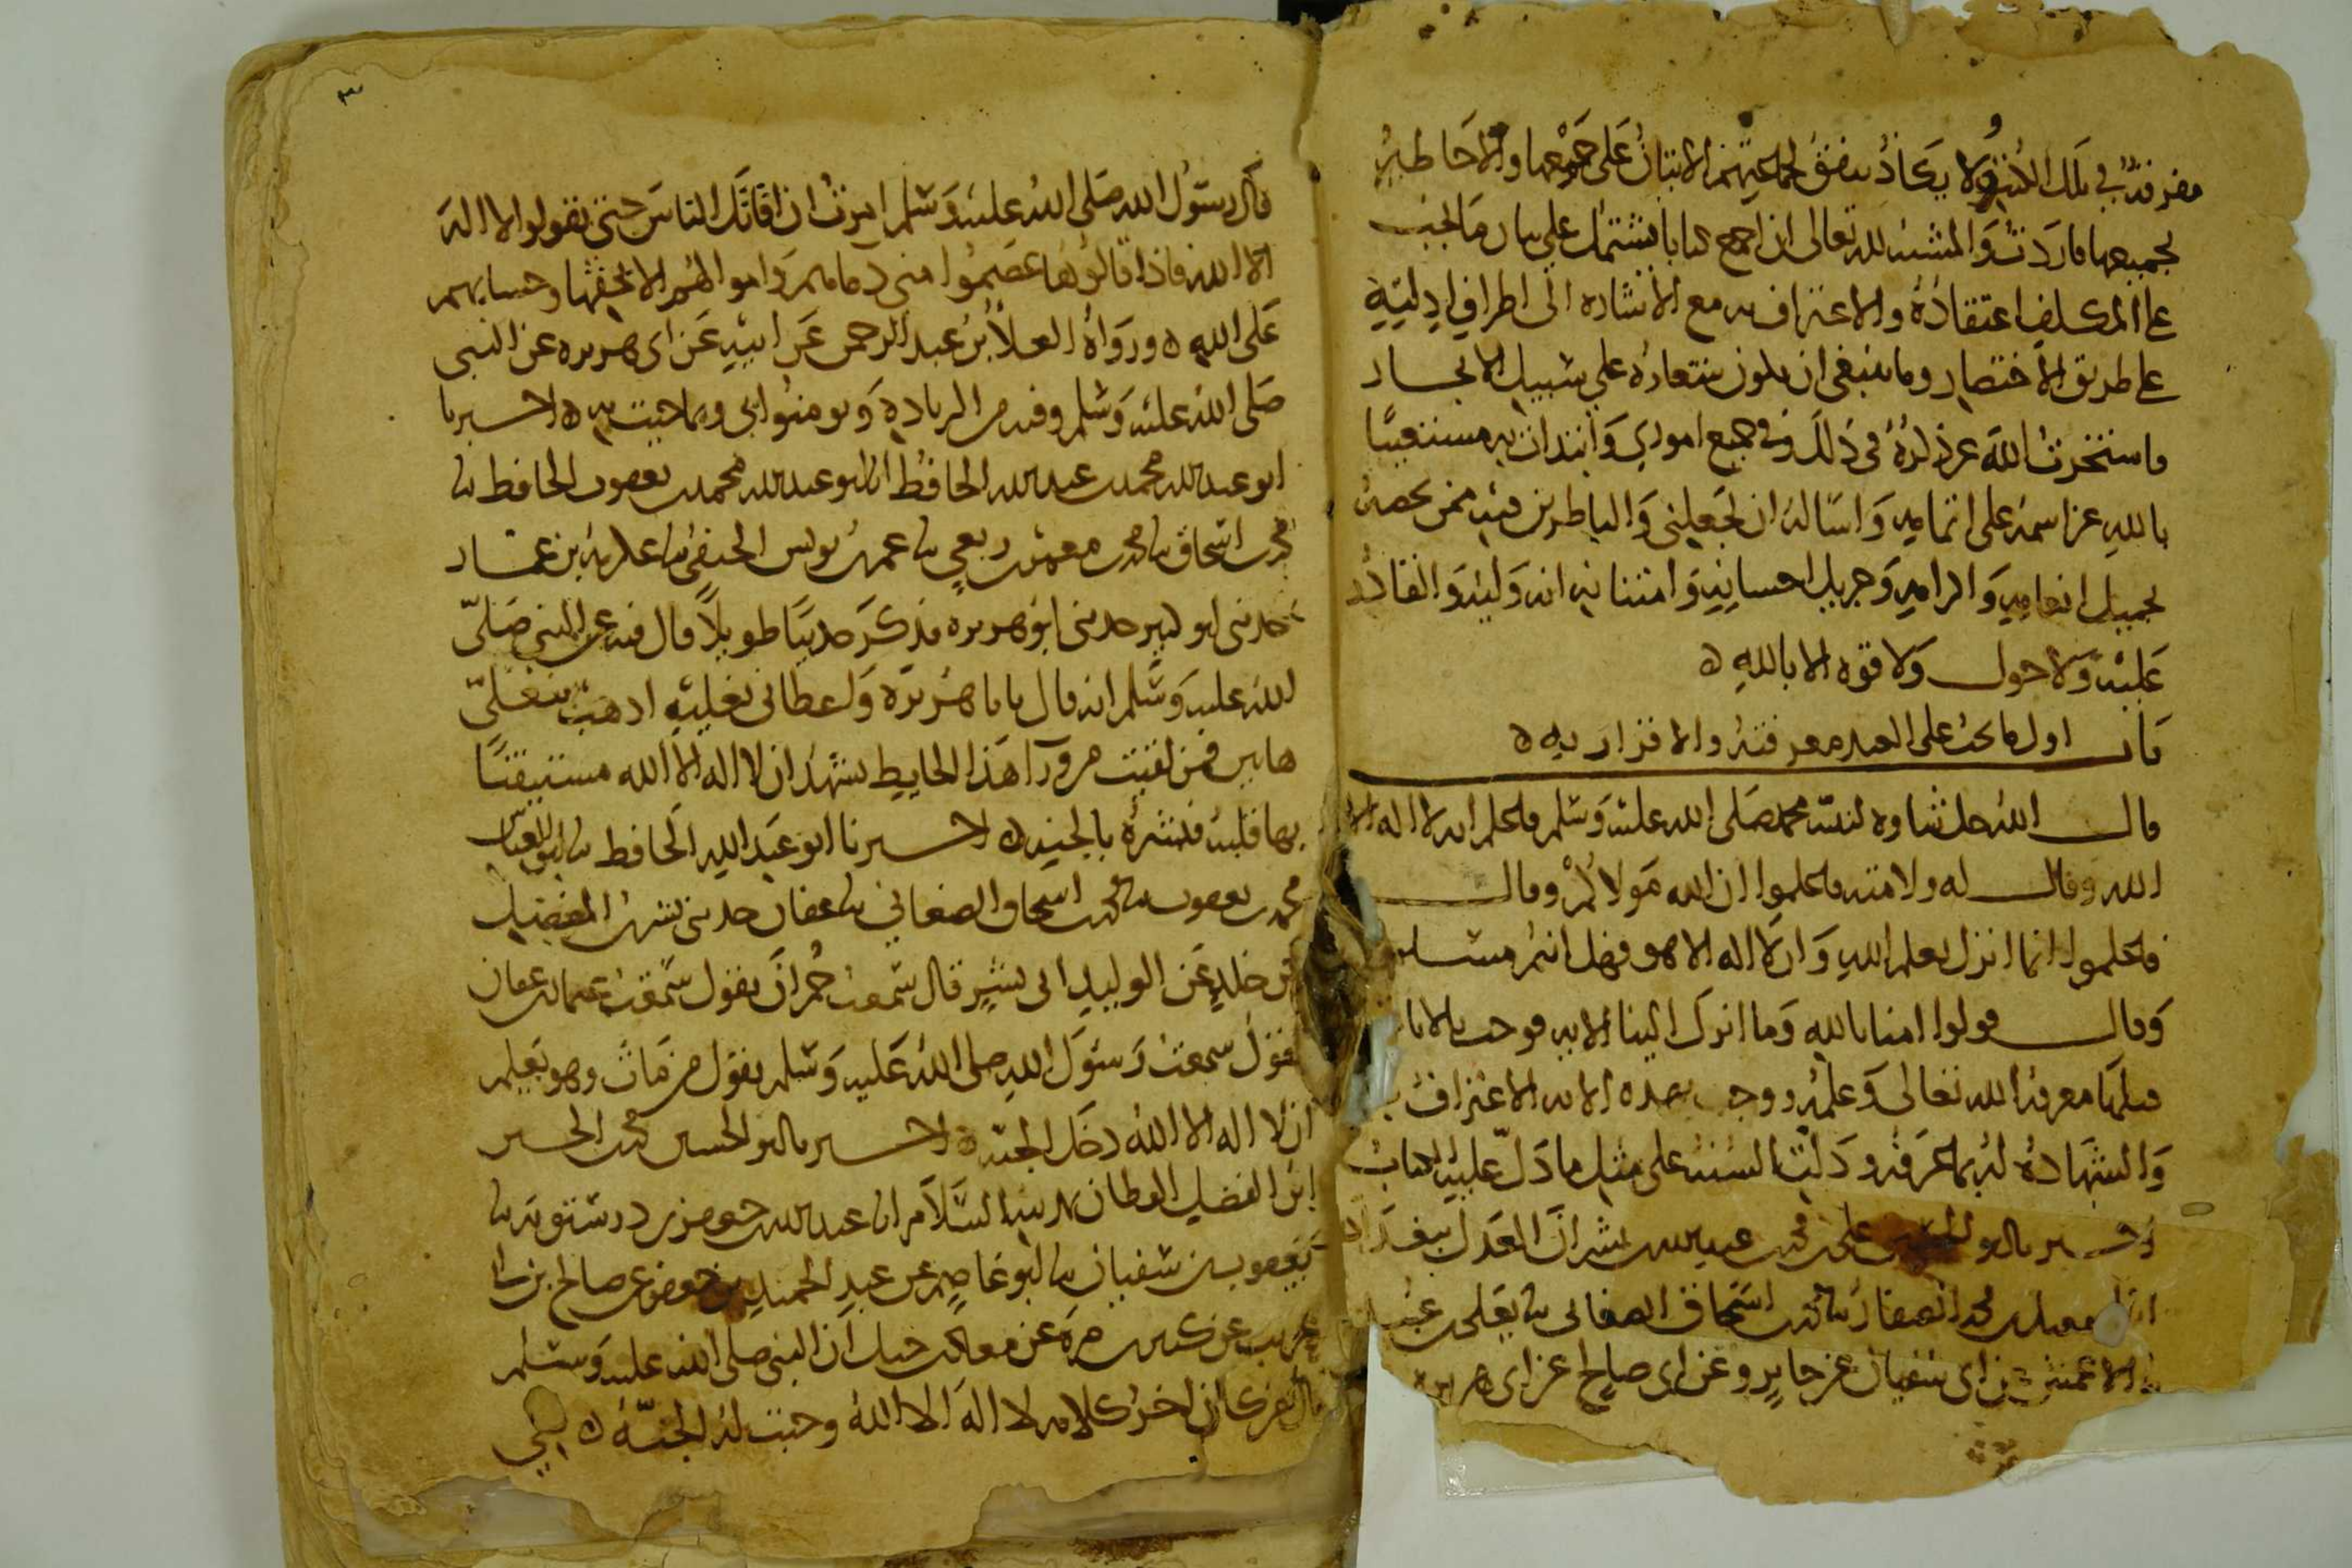 مفرقة في تلك الكتب ولا يكاد يتفق لجماعتهم الاتيان على جميعها والاحاطة
بجميعها فاردت والمشيئة لله تعالى ان اجمع كتابا يشتمل على بيان ما يجب
على المكلف اعتقاده والاعتراف به مع الاشارة الى اطراف ادلته
على طريق الاختصار وما ينبغي ان يكون شعاره على سبيل الايجاز
فاستخرت الله عز ذكره في ذلك وفي جميع اموري وابتدات به مستعينا
بالله عز اسمه على اتمامه واساله ان يجعلني والناظرين فيه ممن يخصه
بجميل انعامه واكرامه وجزيل احسانه وامتنانه انه وليه والقادر
عليه ولا حول ولا قوة الا بالله ه
باب اول ما يجب على العبد معرفته والاقرار به ه
قال الله جل ثناوه لنبيه محمد صلى الله عليه وسلم فاعلم انه لا اله الا
الله وقال له ولامته فاعلموا ان الله مولاكم وقال
فاعلموا انما انزل بعلم الله وان لا اله الا هو فهل انتم مسلمون
وقال قولوا امنا بالله وما انزل الينا الاية فوجب بالايات
قبلها معرفة الله تعالى وعلمه ووجب بهذه الاية الاعتراف به
والشهادة له بما عرفه ودلت السنة على مثل ما دل عليه الكتاب
اخبرنا ابو الحسين علي بن محمد بن عبد الله بن بشران العدل ببغداد
اسمعيل بن محمد الصفار نا محمد بن اسحاق الصغاني نا يعلى بن عبيد
الاعمش عن ابي سفيان عن جابر وعن ابي صالح عن ابي هريرة
٣
قال رسول الله صلى الله عليه وسلم امرت ان اقاتل الناس حتى يقولوا لا اله
الا الله فاذا قالوها عصموا مني دماءهم واموالهم الا بحقها وحسابهم
على الله ه ورواه العلا بن عبد الرحمن عن ابيه عن ابي هريرة عن النبي
صلى الله عليه وسلم وفيه من الزيادة ويومنوا بي وبما جيت به ه اخبرنا
ابو عبد الله محمد بن عبد الله الحافظ انا ابو عبد الله محمد بن يعقوب الحافظ نا
محمد بن اسحاق نا محمد بن معمر بن ربعي نا عمر بن يونس الحنفي نا عكرمة بن عمار
حدثني ابو كثير حدثني ابو هريرة فذكر حديثا طويلا قال فيه عن النبي صلى
الله عليه وسلم انه قال يابا هريرة واعطاني نعليه اذهب بنعلي
هاتين فمن لقيت من ورآ هذا الحايط يشهد ان لا اله الا الله مستيقنا
بها قلبه فبشره بالجنة ه اخبرنا ابو عبد الله الحافظ نا ابو العباس
محمد بن يعقوب نا محمد بن اسحاق الصغاني نا عفان حدثني بشر بن المفضل
عن خلد عن الوليد ابي بشر قال سمعت حمران يقول سمعت عثمان بن عفان
يقول سمعت رسول الله صلى الله عليه وسلم يقول من مات وهو يعلم
ان لا اله الا الله دخل الجنة ه اخبرنا ابو الحسين محمد بن الحسين
ابن الفضل القطان بمدينة السلام انا عبد الله بن جعفر بن درستويه نا
يعقوب بن سفيان نا ابو عاصم عن عبد الحميد بن جعفر عن صالح بن ابي
عريب عن كثير بن مرة عن معاذ بن جبل ان النبي صلى الله عليه وسلم
قال من كان اخر كلامه لا اله الا الله وجبت له الجنة ه